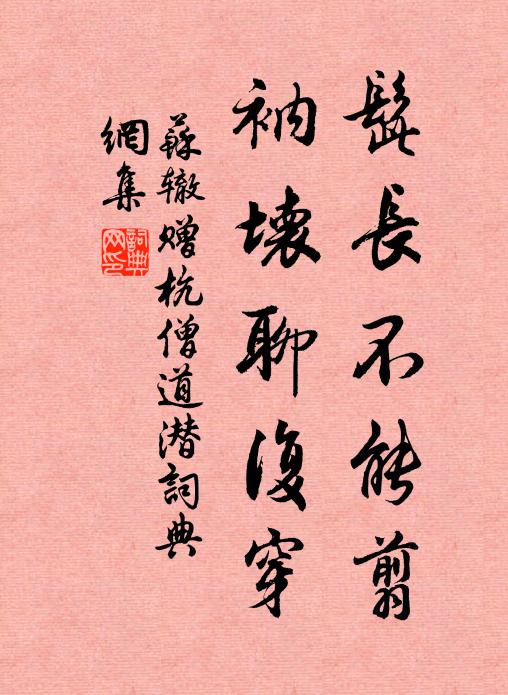 髭長不能翦
衲壞聊復穿
蘇辙赠杭僧道潜詞典
網集
詞典
网印